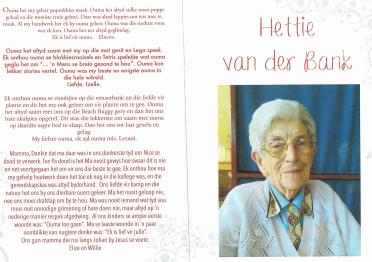 Ouma het my geleer poprokkies maak. Ouma het altyd sulke mooi poppe
gehad en die mooiste truie gebrei. Daar was altyd lappies om iets mee te
maak. Al my handwerk het ek by ouma geleer. Ouma was die sterkste vrou
wat ek ken. Ouma het net altyd geglimlag.
Ek is lief vir ouma. Elnette.
Ouma het altyd saam met my op die mat gesit en Lego speel.
Ek onthou ouma se blokkiesraaisels en Tetris speletjie wat ouma
geglo het om "... 'n Mens se brein gesond te hou". Ouma kon
lekker stories vertel. Ouma was my beste en enigste ouma in
die hele wêreld.
Liefde. Izelle.
Ek onthou ouma se viooltjies op die vensterbank en die liefde vir
plante en dit het my ook geleer om vir plante om te gee. Ouma
het altyd saam met ons op die Beach Buggy gery en dan het ons
baie skulpies opgetel. Dit was die lekkerste om saam met ouma
op daardie sagte bed te slaap. Dan het ons tot laat gesels en
gelag.
My liefste ouma, ek sal ouma mis. Lerant.
Mamma, Dankie dat ma daar was in ons donkerste tyd om Nico se
dood te verwerk. Ten Pa dood is het Ma nooit gewys hoe swaar dit is nie
en net voortgegaan het om vir ons die beste te gee. Ek onthou hoe ma
my gehelp houtwerk doen het toe ek nog in die kollege was, en die
gereedskapkas was altyd byderhand. Ons liefde vir kamp en die
natuur het ons by ons dierbare ouers geleer. Ma het nooit geloop nie,
nee ons moes drafstap om by te hou. Ma was nooit iemand wat tyd sou
mors met onnodige grimering of hare doen nie, maar altyd op 'n
nederige manier respek afgedwing. Al ons kinders se amper eerste
woorde was: "Ouma toe gaan". Ma se laaste woorde in 'n paar
oomblikke van nugtere denke was: "Ek is lief vir julle".
Ons gun mamma die rus langs Johan by Jesus se voete.
Elize en Willie
Hettie
van der Bank